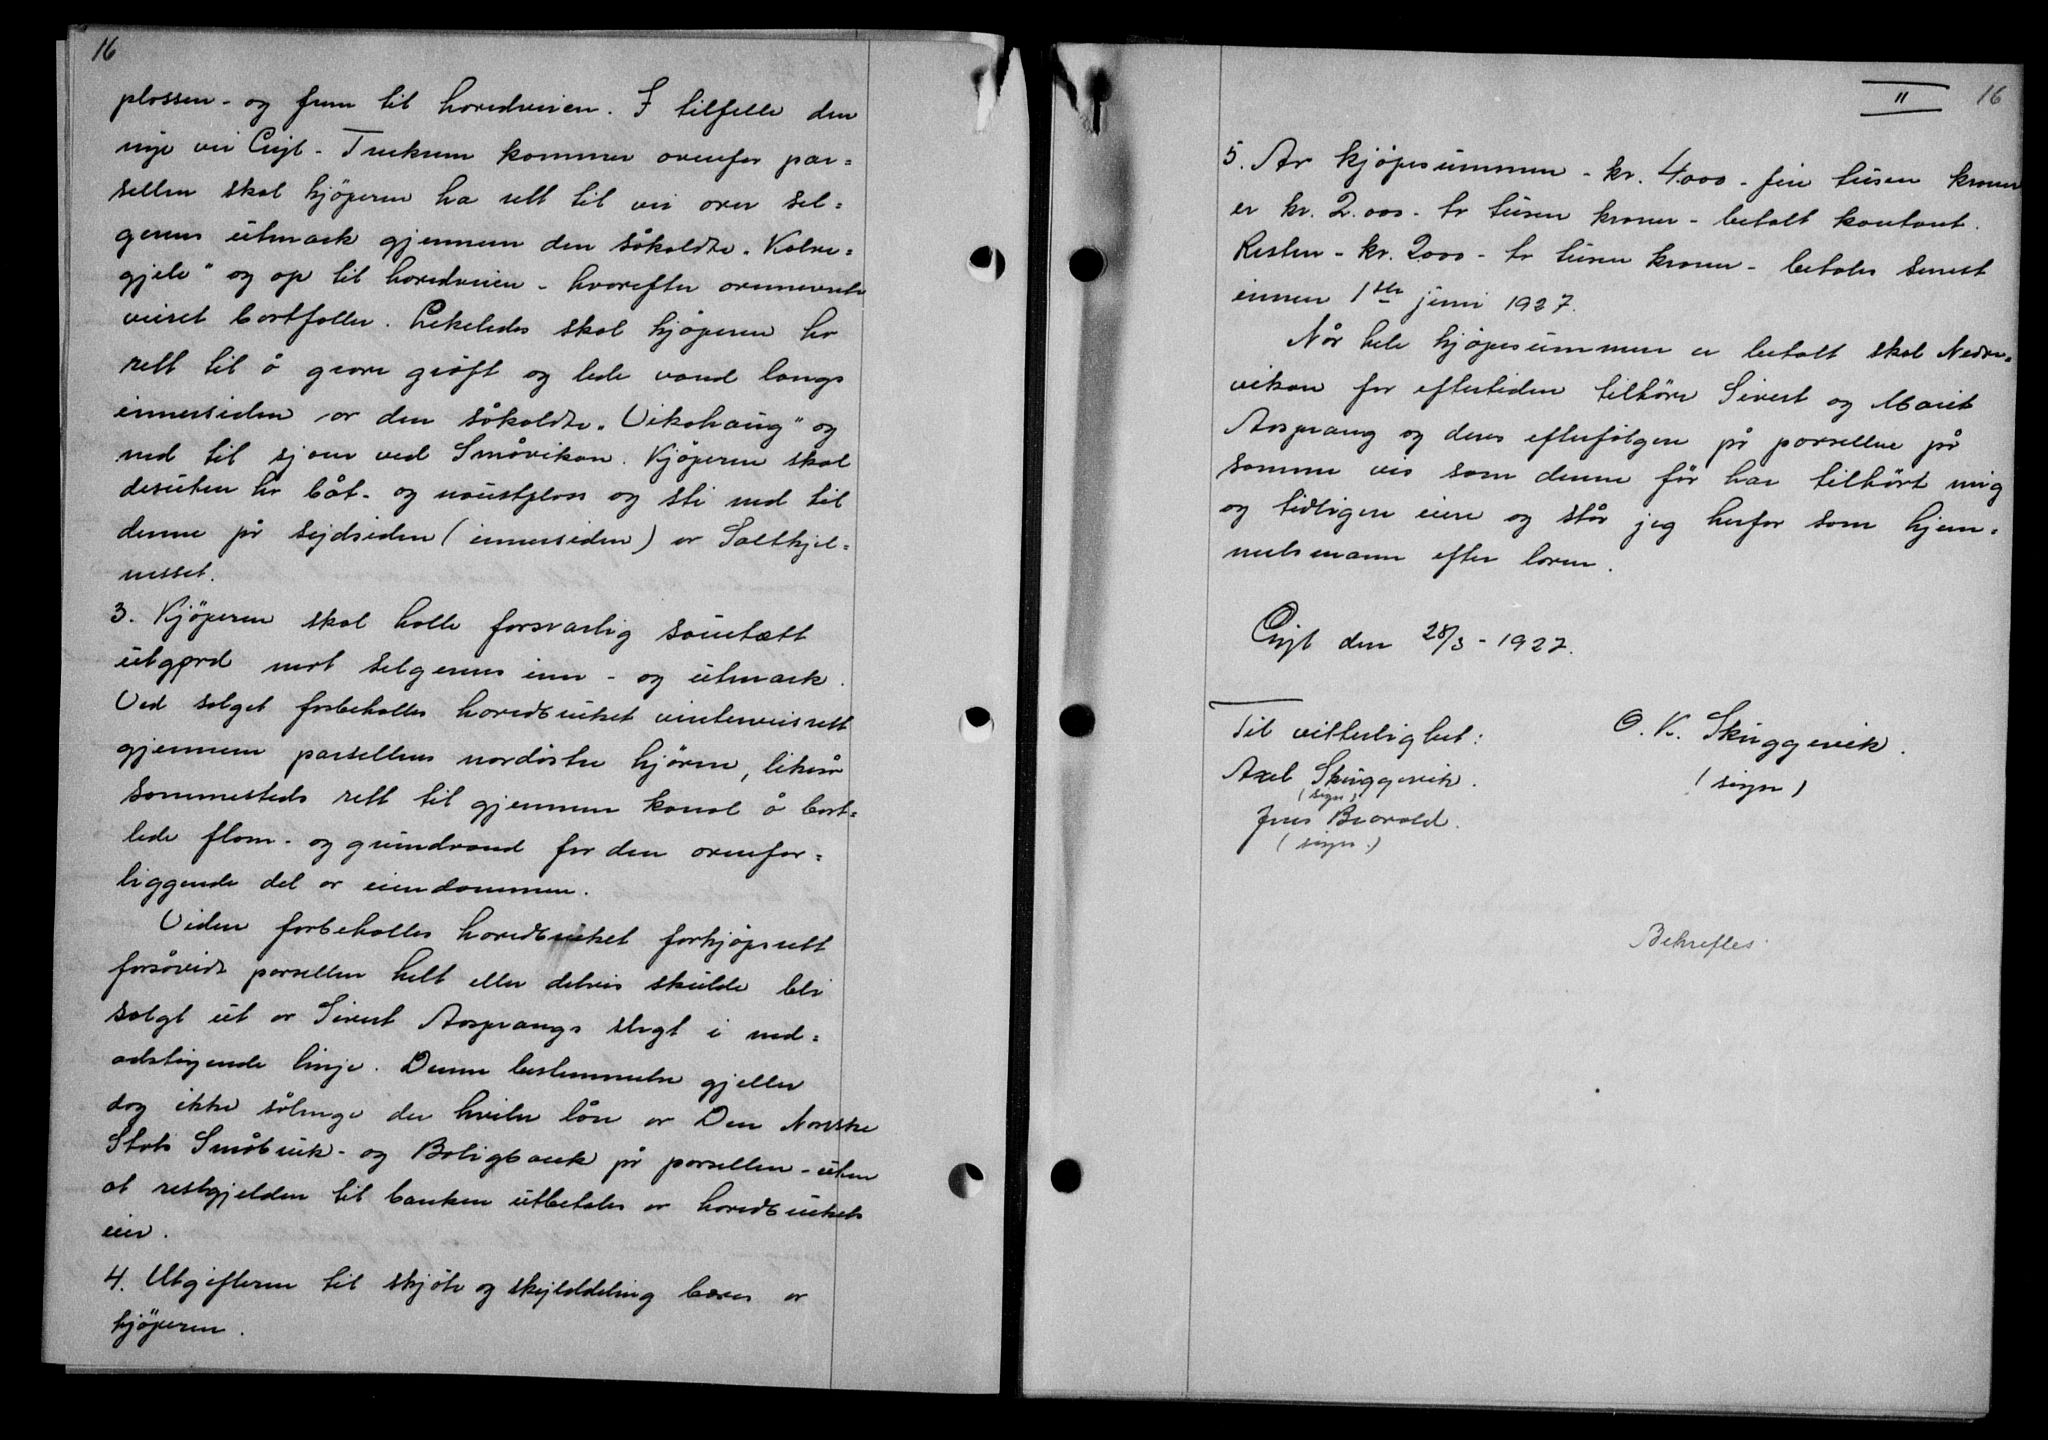 16
plassen - og frem til hovedveien. I tilfelle den
nye vei Eujt - Trekrem kommer ovenfor par=
sellen skal kjöperen ha rett til vei over sel=
gerens utmark gjennem den såkaldte "Kalve=
gjele" og op til hovedveien - hvorefter ovennevnte
veirett bortfaller. Likeledes skal kjöperen ha
rett til å grave gröft og lede vand langs
innersiden av den såkaldte "Vikahaug" og
ned til sjøen ved Småvikan. Kjöperen skal
desuten ha båt- og naustplass og sti ned til
denne på sydsiden (innersiden) av Saltkjel=
nesset.
3. Kjöperen skal holde forsvarlig sauetætt
utgjerd mot selgerens inn- og utmark.
Ved salget forbeholdes hovedbruket vinterveisrett
gjennem parsellens nordöstre hjörne, likeså
sammesteds rett til gjennem kanal å bort=
lede flom- og grundvand for den ovenfor=
liggende del av eiendommen.
Viden forbeholdes hovedbruket forkjöpsrett
forsåvidt parsellen helt eller delvis skulde bli
solgt ut av Sivert Aasprangs slegt i ned=
adstigende linje. Denne bestemmelse gjelder
dog ikke sålenge der hviler lån av Den Norske
Stats Småbruk- og Boligbank på parsellen - uten
at restgjelden til banken utbetales av hovedbrukets
eier.
4. Utgifterne til skjöte og skylddeling bæres av
kjöperen.
11 16
5. Av kjöpesummen - kr. 4000 - fire tusen kroner
er kr. 2.000 - to tusen kroner - betalt kontant.
Resten - kr. 2000 - to tusen kroner - betales senest
innen 1ste juni 1927.
Når hele kjöpesummen er betalt skal Nedre=
vikan for eftertiden tilhöre Sivert og Marit
Aasprang og deres efterfölgere på parsellen på
samme vis som denne för har tilhört mig
og tidligere eiere og står jeg herfor som hjem=
melsmann efter loven.
den 28/3 - 1927.
Til vitterlighet: O. K. Skuggevik.
Axel Skuggevik. (sign)
(sign)
Jens Bjorvold.
(sign.)
Bekreftes.